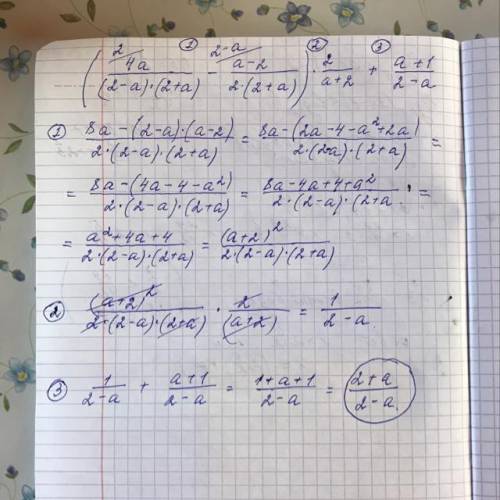 ( ²/ 4a / (2-a)·(2+a) ① - ²⁻ᵃ/ a-2 / 2·(2+a) ) ② · 2 / a+2 ③ + a+1 / 2-a
① 8a-(2-a)·(a-2) / 2·(2-a)·(2+a) = 8a-(2a-4-a²+2a) / 2·(2-a)·(2+a) =
= 8a-(4a-4-a²) / 2·(2-a)·(2+a) = 8a-4a+4+a² / 2·(2-a)·(2+a =
= a²+4a+4 / 2·(2-a)·(2+a) = (a+2)² / 2·(2-a)·(2+a)
② (a+2)² / 2·(2-a)·(2+a) · 2 / (a+2) = 1 / 2-a
③ 1 / 2-a + a+1 / 2-a = 1+a+1 / 2-a = 2+a / 2-a.